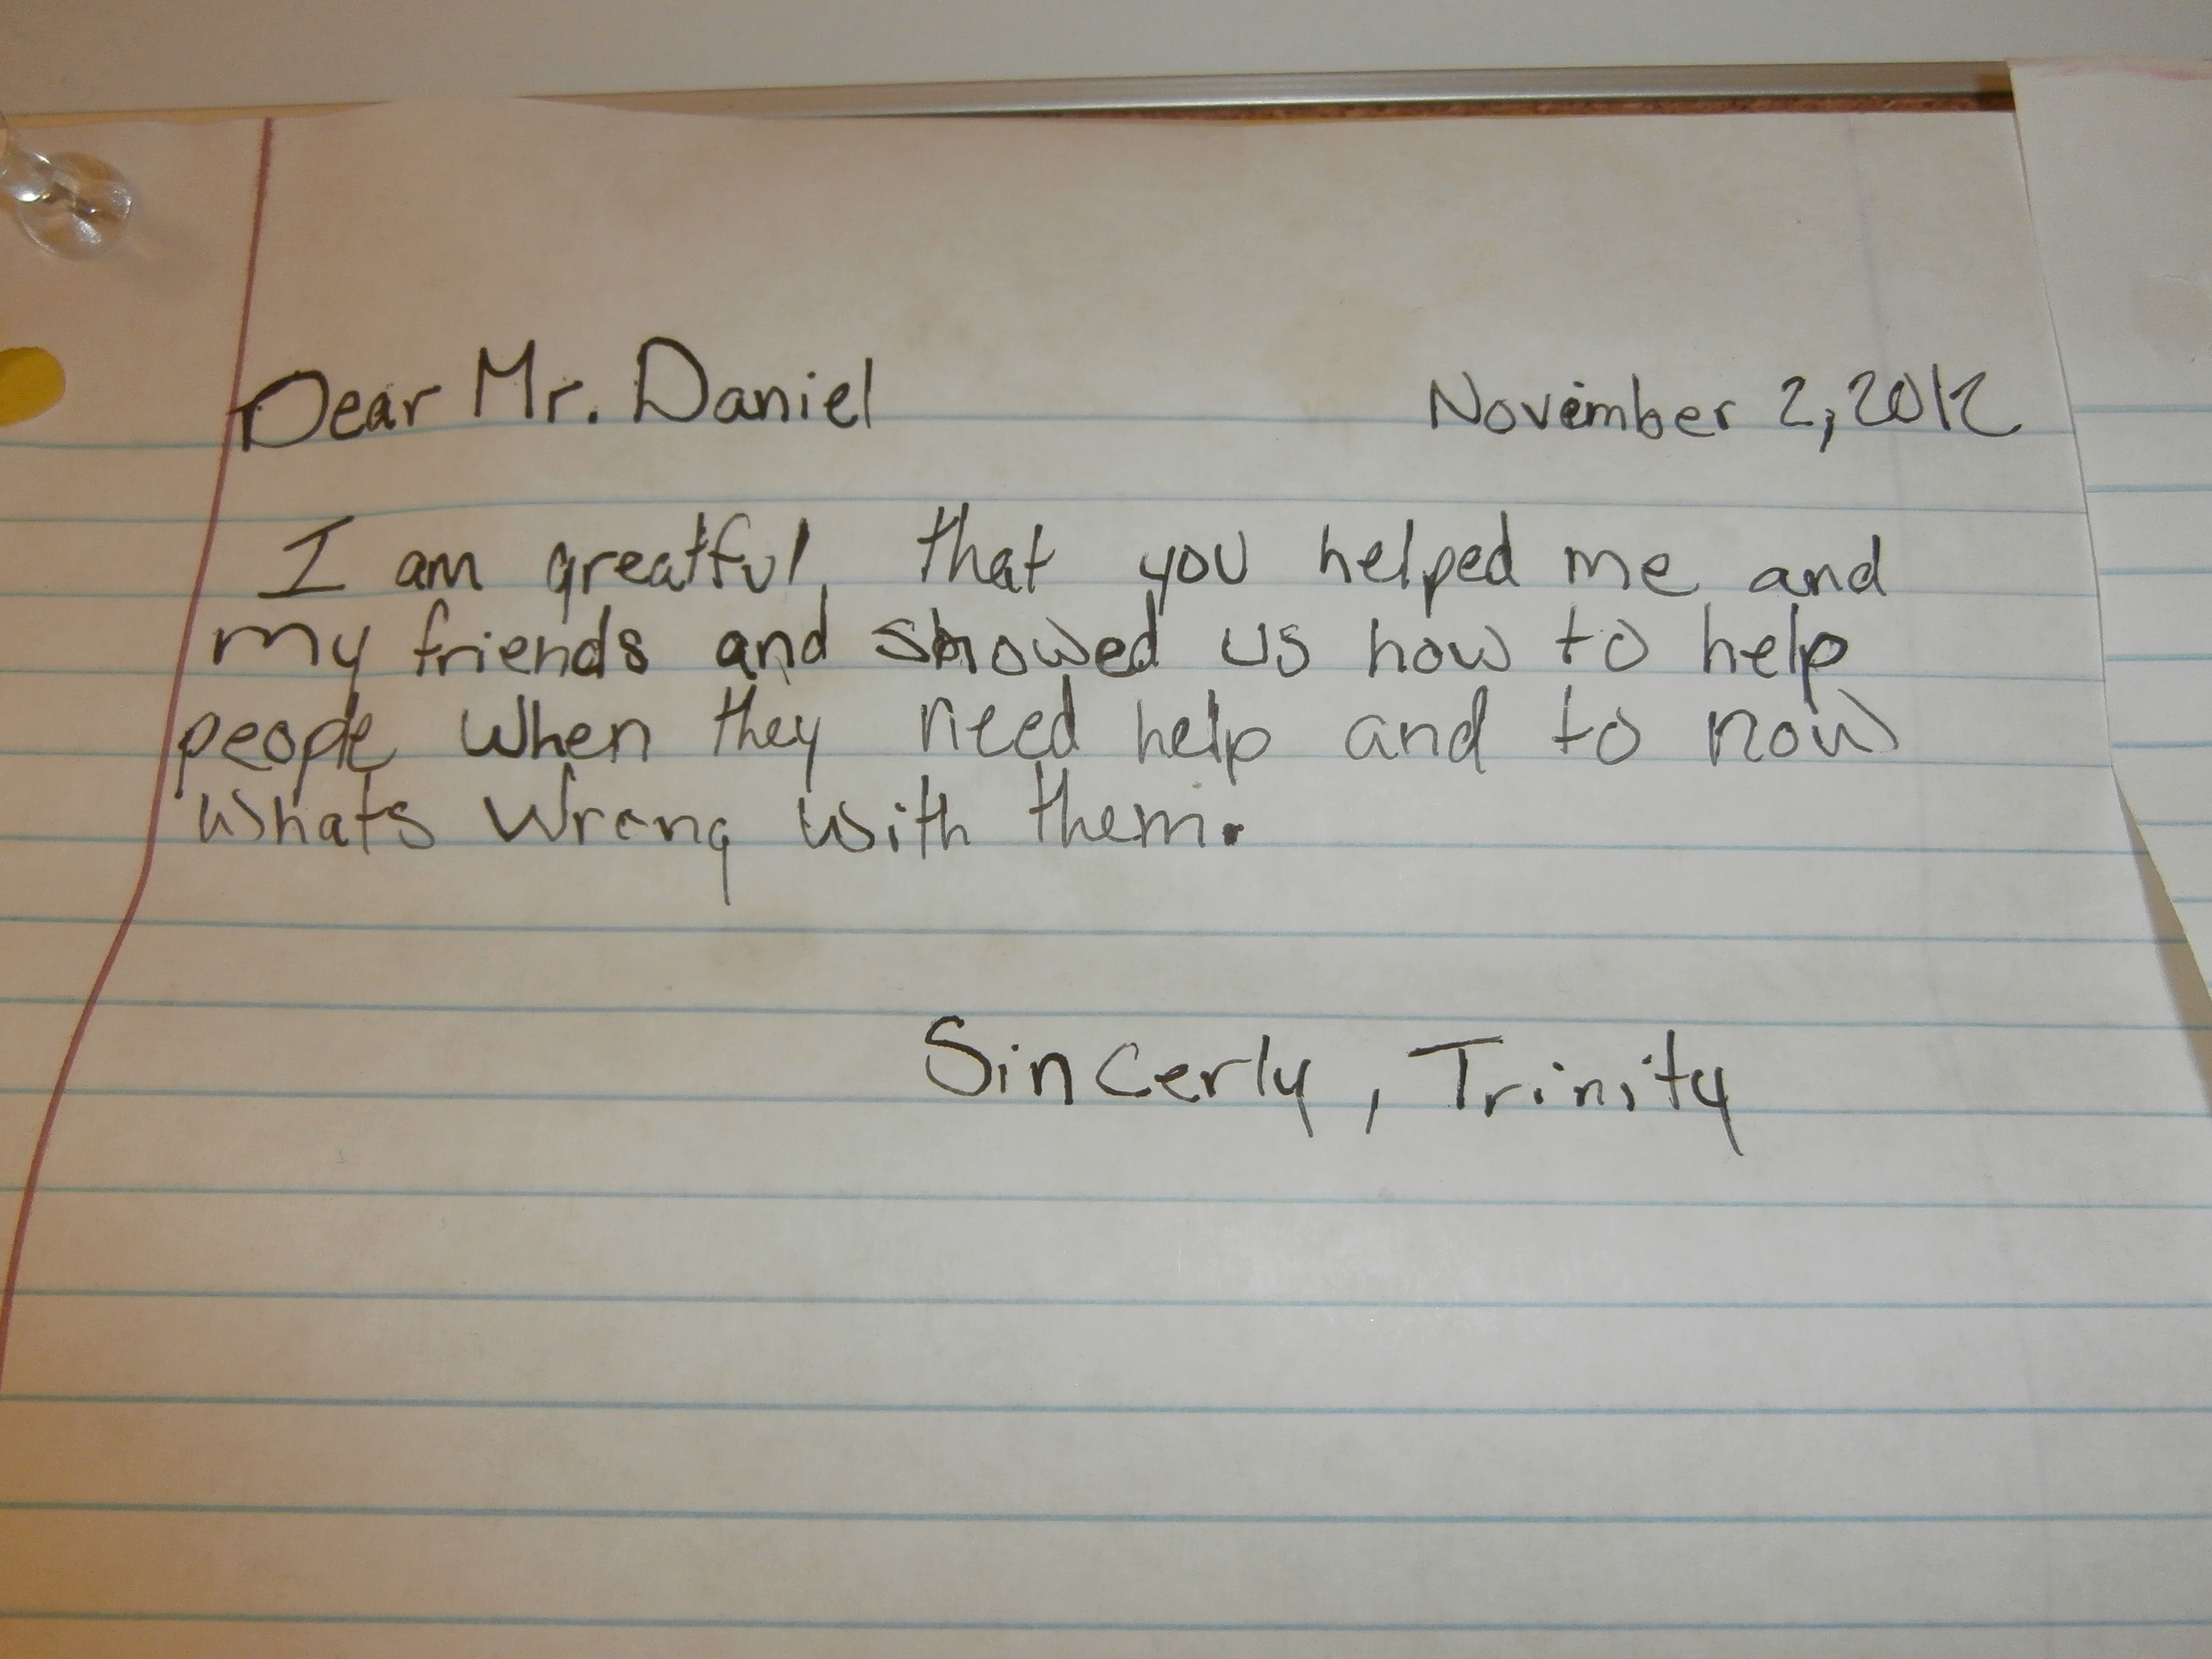 Dear Mr. Daniel November 2, 2012
I am greatful, that you helped me and
my friends and showed us how to help
people when they need help and to now
whats wrong with them.
Sincerly, Trinity